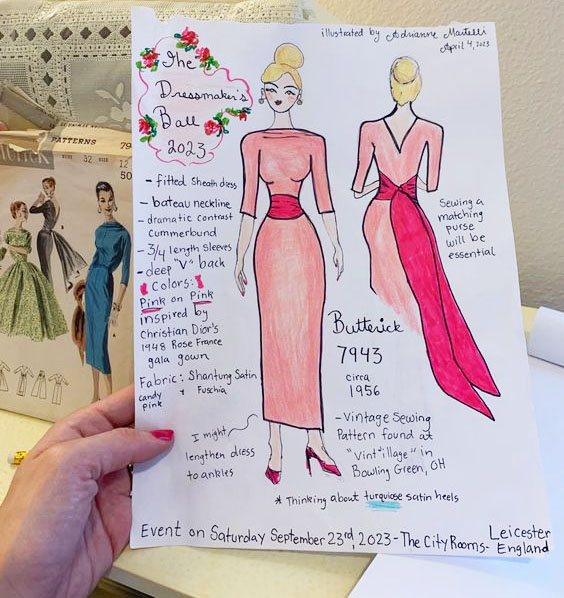 illustrated by Adrianne Martelli
April 4, 2023
The
Dressmaker's
Ball
2023
PATTERNS 79
SIZE 12
32
50
- fitted sheath dress
- bateau neckline
- dramatic contrast
cummerbund
- 3/4 length sleeves
- deep "V" back
Colors:
Pink on Pink
inspired by
Christian Dior's
1948 Rose France
gala gown
Fabric: Shantung Satin
candy pink + Fuschia
I might
lengthen dress
to ankles
Sewing a
matching
purse
will be
essential
Butterick
7943
circa
1956
- Vintage Sewing
Pattern found at
"Vint'illage" in
Bowling Green, OH
* Thinking about turquiose satin heels
Event on Saturday September 23rd, 2023 - The City Rooms - Leicester
England